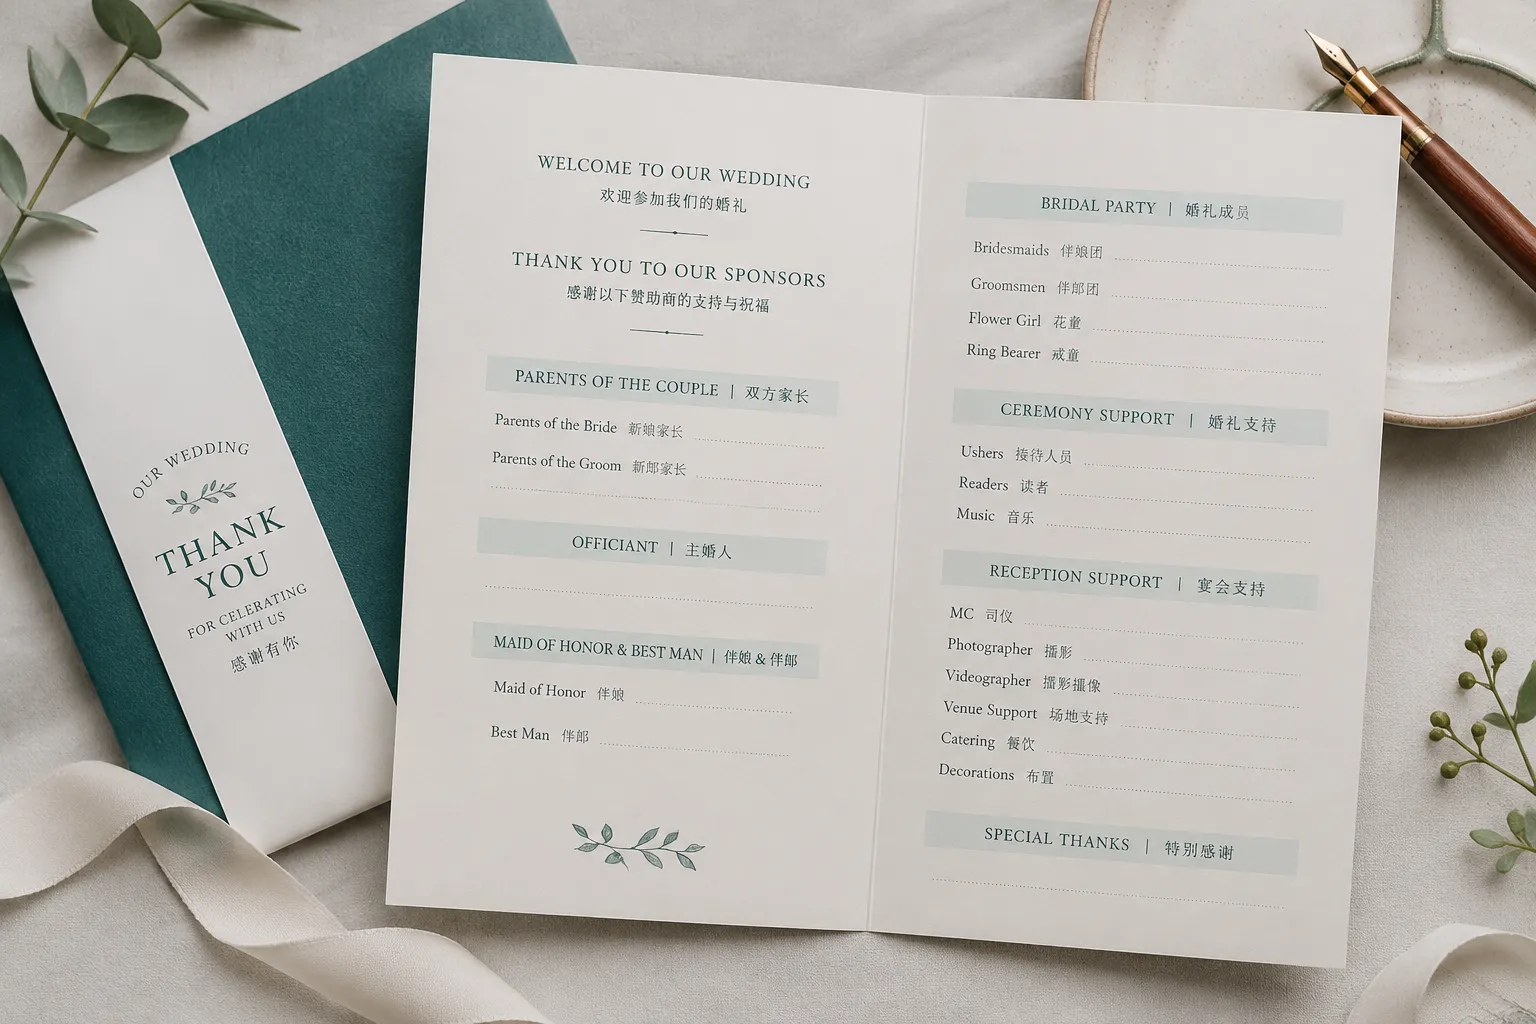 OUR WEDDING
THANK
YOU
FOR CELEBRATING
WITH US
感谢有你
WELCOME TO OUR WEDDING
欢迎参加我们的婚礼
THANK YOU TO OUR SPONSORS
感谢以下赞助商的支持与祝福
PARENTS OF THE COUPLE | 双方家长
Parents of the Bride 新娘家长
Parents of the Groom 新郎家长
OFFICIANT | 主婚人
MAID OF HONOR & BEST MAN | 伴娘 & 伴郎
Maid of Honor 伴娘
Best Man 伴郎
BRIDAL PARTY | 婚礼成员
Bridesmaids 伴娘团
Groomsmen 伴郎团
Flower Girl 花童
Ring Bearer 戒童
CEREMONY SUPPORT | 婚礼支持
Ushers 接待人员
Readers 读者
Music 音乐
RECEPTION SUPPORT | 宴会支持
MC 司仪
Photographer 摄影
Videographer 摄影摄像
Venue Support 场地支持
Catering 餐饮
Decorations 布置
SPECIAL THANKS | 特别感谢